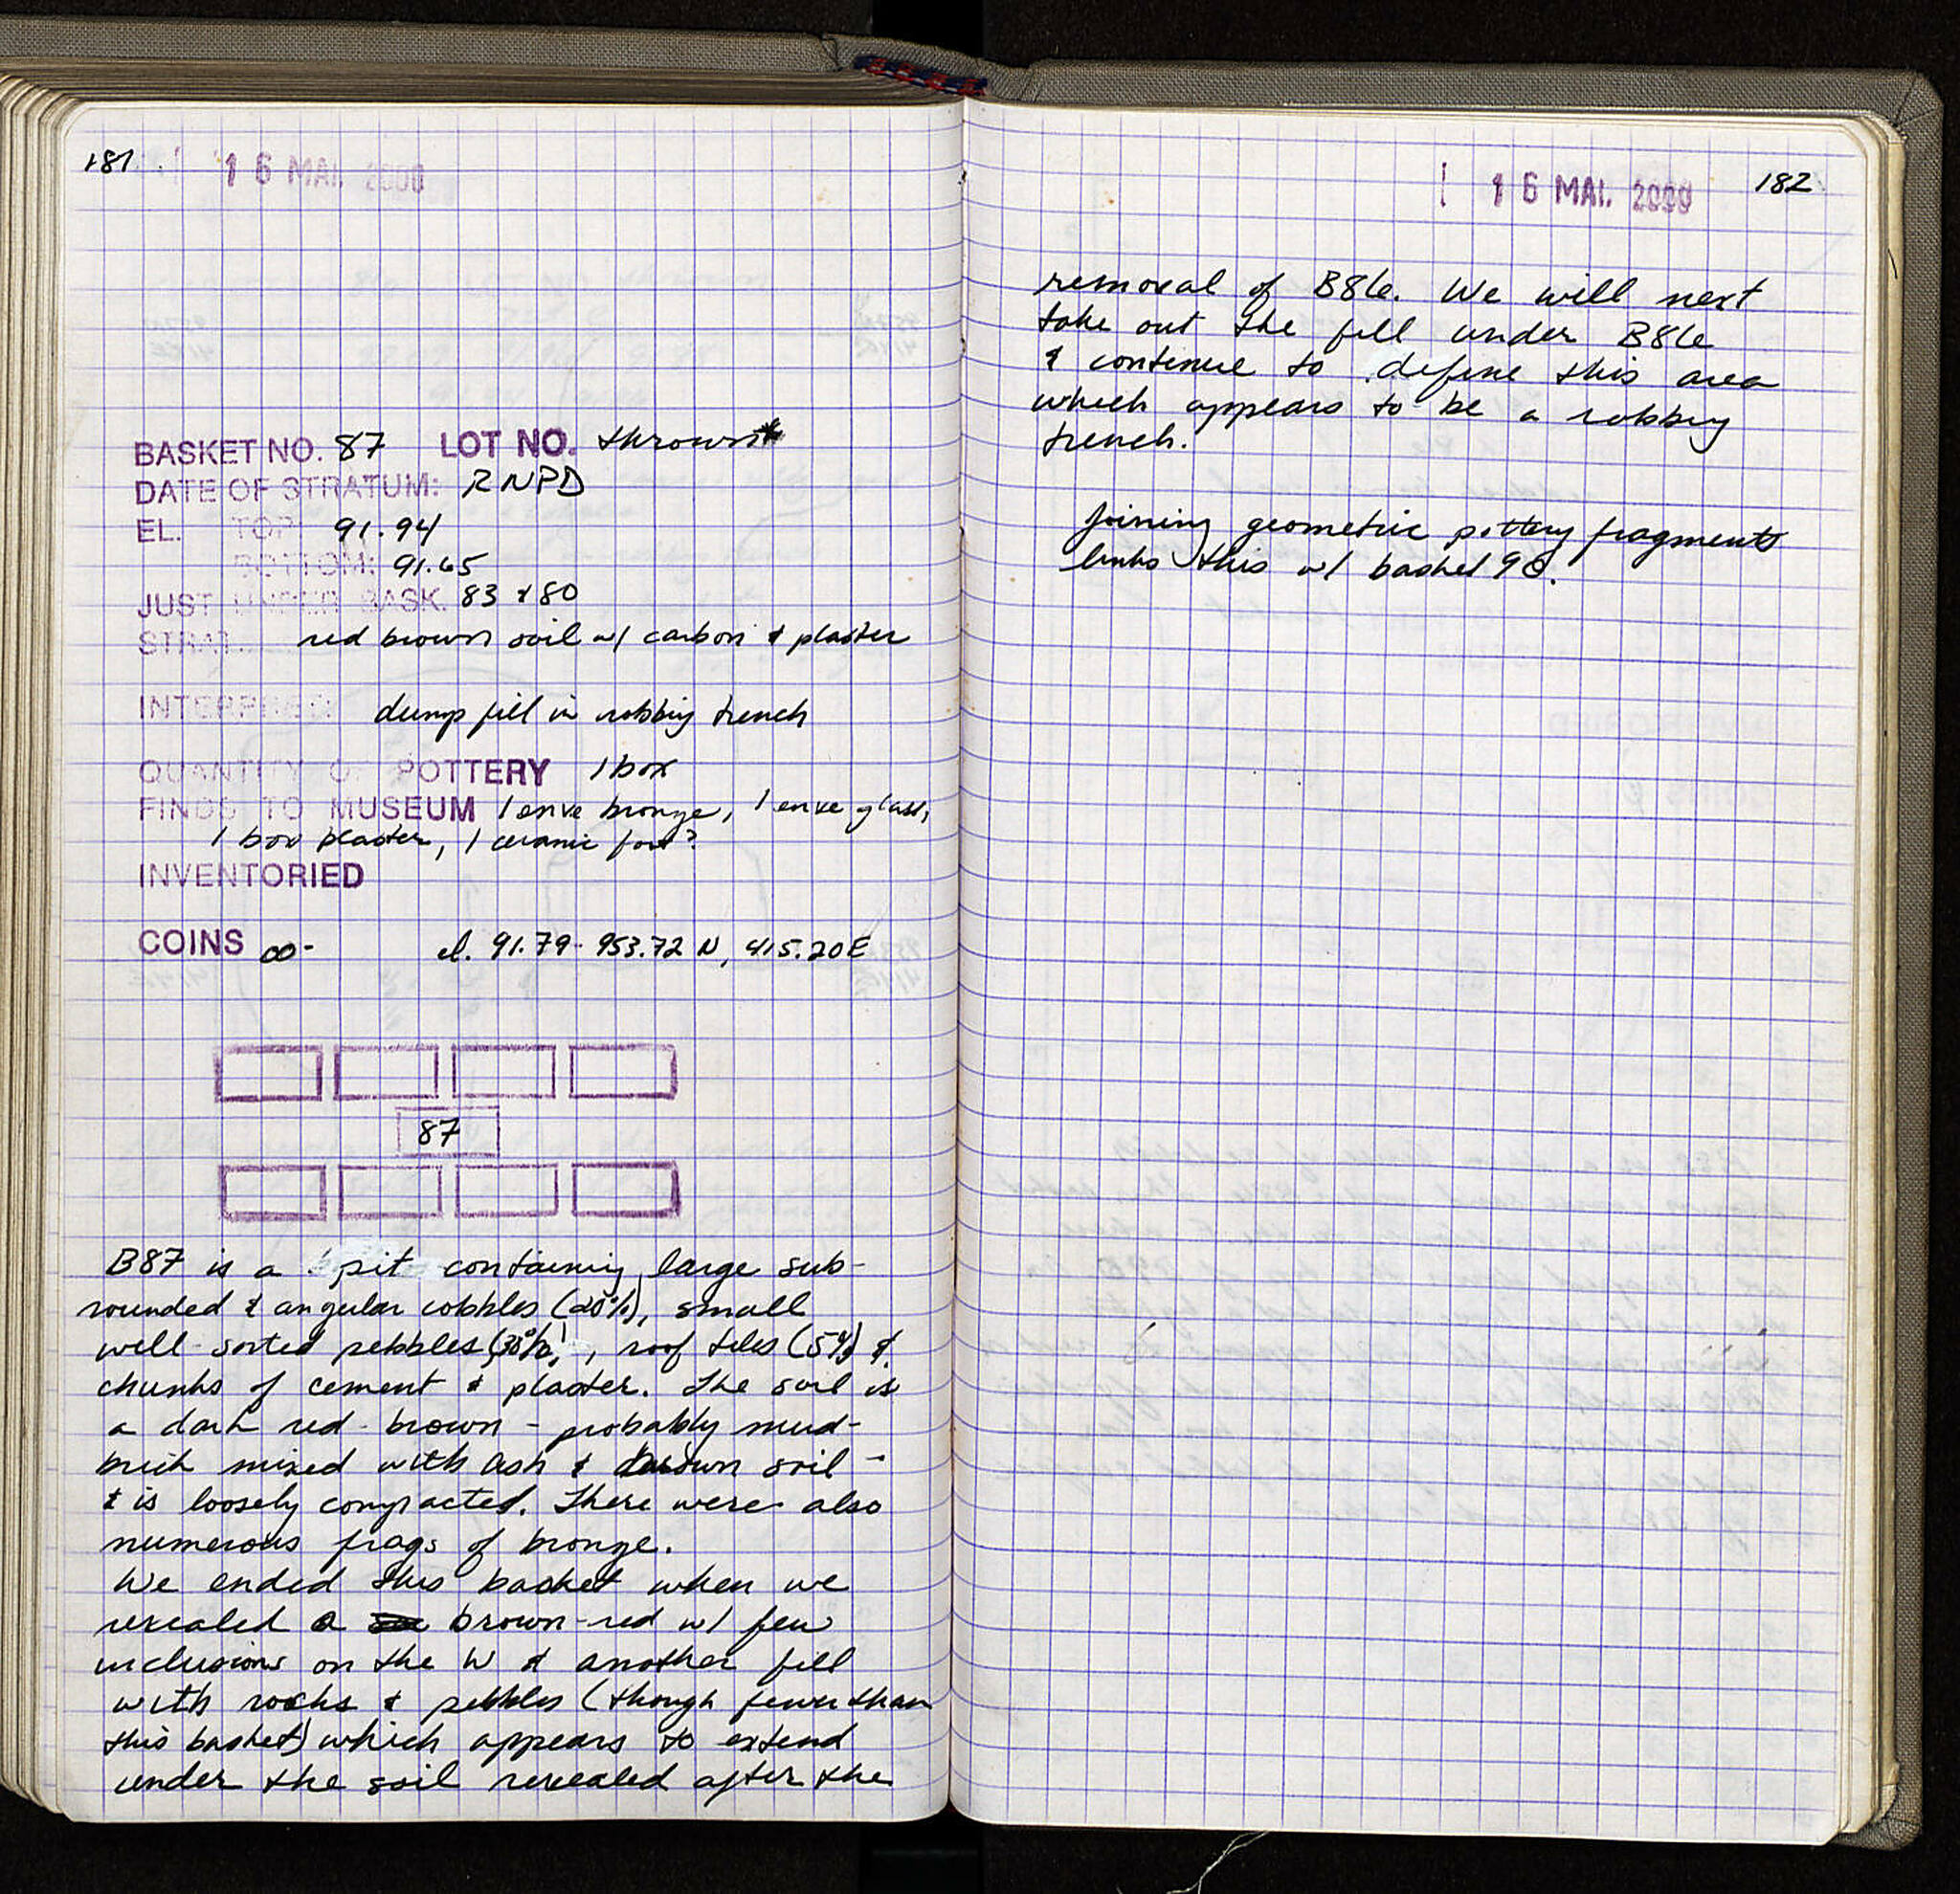 181
16 MAI. 2000
BASKET NO. 87 LOT NO. thrown*
DATE OF STRATUM: RNPD
EL. TOP: 91.94
BOTTOM: 91.65
JUST UNDER BASK. 83 & 80
STRAT. red brown soil w/ carbon & plaster
INTERPRET: dump fill in robbing trench
QUANTITY OF POTTERY 1 box
FINDS TO MUSEUM 1 enve bronze, 1 enve glass,
1 box plaster, 1 ceramic foot?
INVENTORIED
COINS 00- el. 91.79- 953.72 N, 415.20 E
87
B87 is a pit containing large sub-
rounded & angular cobbles (20%), small
well-sorted pebbles (30%), roof tiles (5%) &
chunks of cement & plaster. The soil is
a dark red-brown - probably mud-
brick mixed with ash & brown soil -
& is loosely compacted. There were also
numerous frags of bronze.
We ended this basket when we
revealed a brown-red w/ few
inclusions on the W & another fill
with rocks & pebbles (though fewer than
this basket) which appears to extend
under the soil revealed after the
16 MAI. 2000
182
removal of B86. We will next
take out the fill under B86
& continue to define this area
which appears to be a robbing
trench.
Joining geometric pottery fragments
links this w/ basket 90.